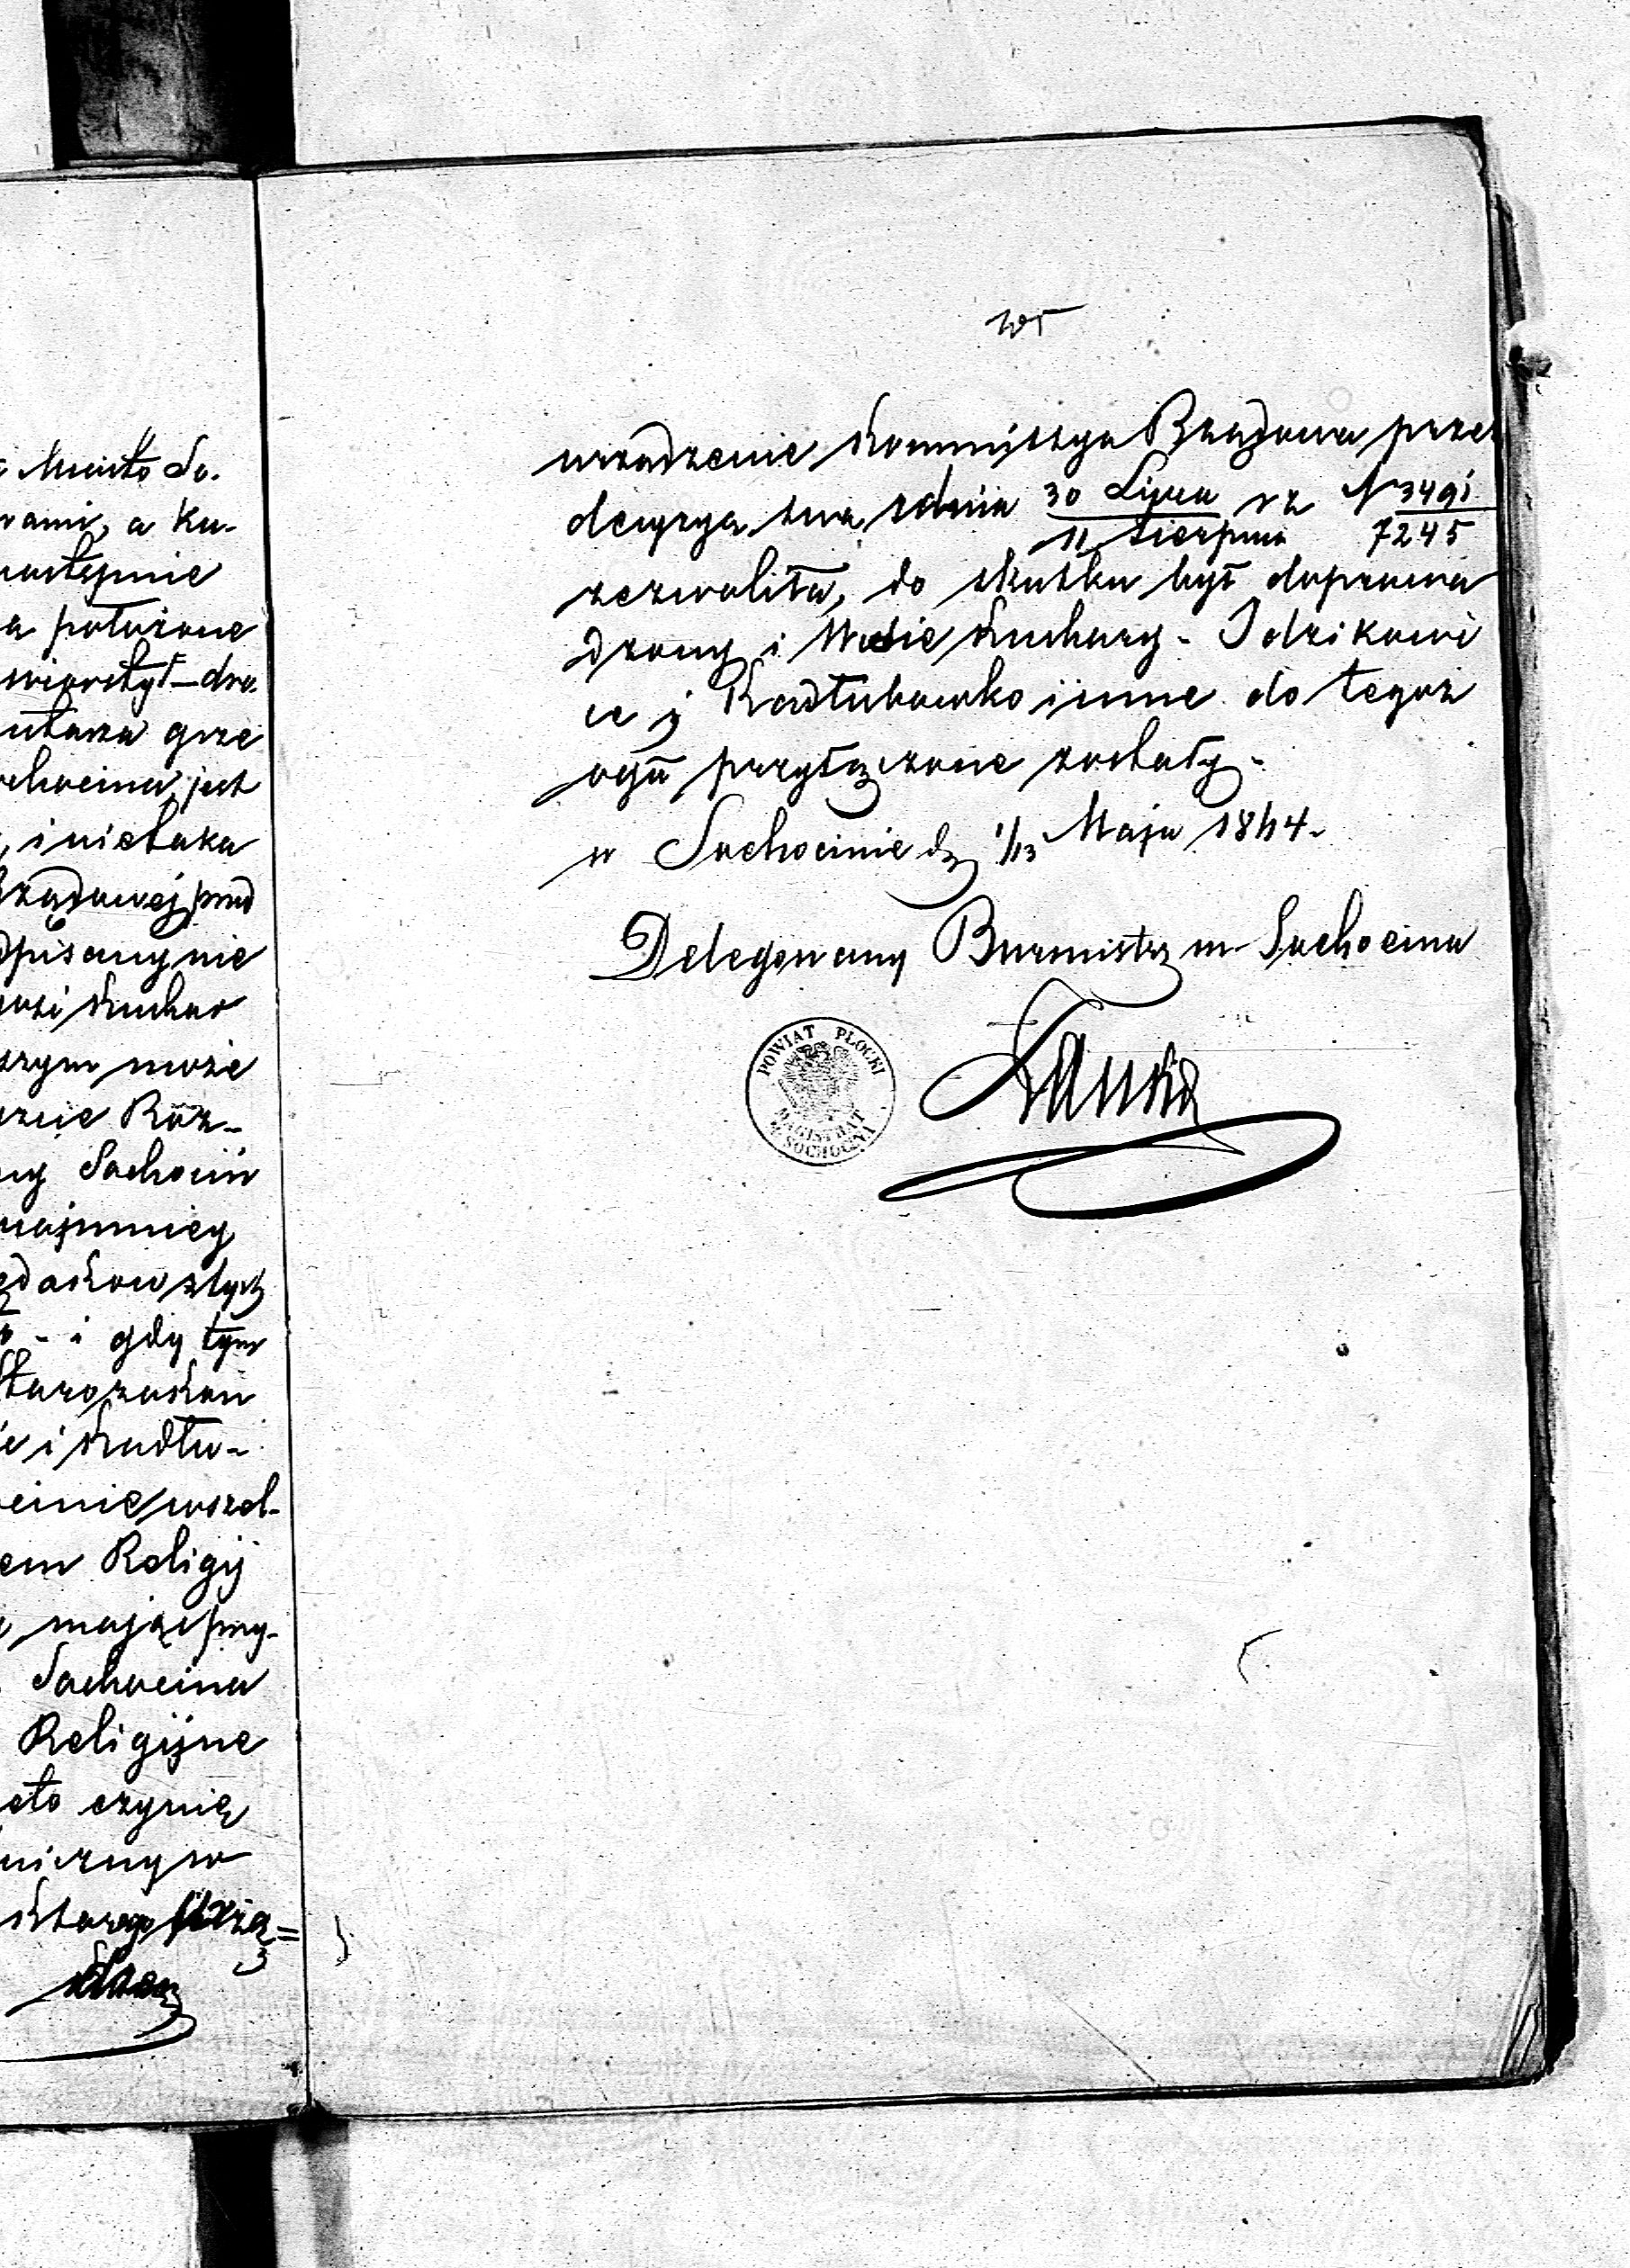 Miasto So.
rami, a Ku-
następnie
a położone
wiorsty – dro.
utarza grze
ochocina jest
, i nietaka
Rządowej pod
dpisany nie
wsi Kuchar
szym może
Roz-
ny Sochocin
najmniey
- i gdy tym
Starozakon
e i Kadłu-
cinie wszel-
em Religij
, mając przy-
Sochocina
Religijne
to czynią
niczny w
którego Urzą=
urządzenie Kommissya Rządowa przez
decyzyą swą z dnia 30 Lipca / 11 Sierpnia rz N 3491 / 7245
zezwoliła, do skutku był doprowa
dzony i Wsie Kuchary - Idzikowi
ce i Kadłubowko i inne do tegoż
ogu przyłączone zostały -
w Sochocinie d. 1/13 Maja 1844.
Delegowany Burmistrz m. Sochocina
POWIAT PŁOCKI
MAGISTRAT
M. SOCHOCYN